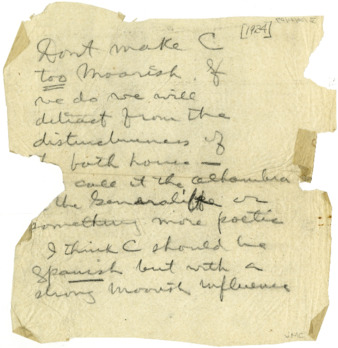 [1924]
Don't make C
too Moorish. If
we do we will
detract from the
distinctiveness of
bath house —
call it the alhambra
the Generaliffe or
something more poetic
I think C should be
Spanish but with a
strong Moorish influence